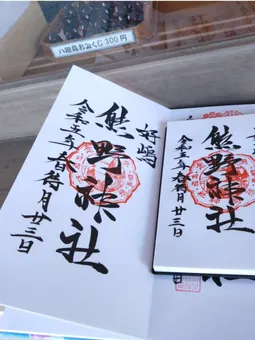 八咫烏おみくじ 300円
好嶋
熊野神社
令和五年春待月廿三日
熊野神社
令和五年春待月廿三日